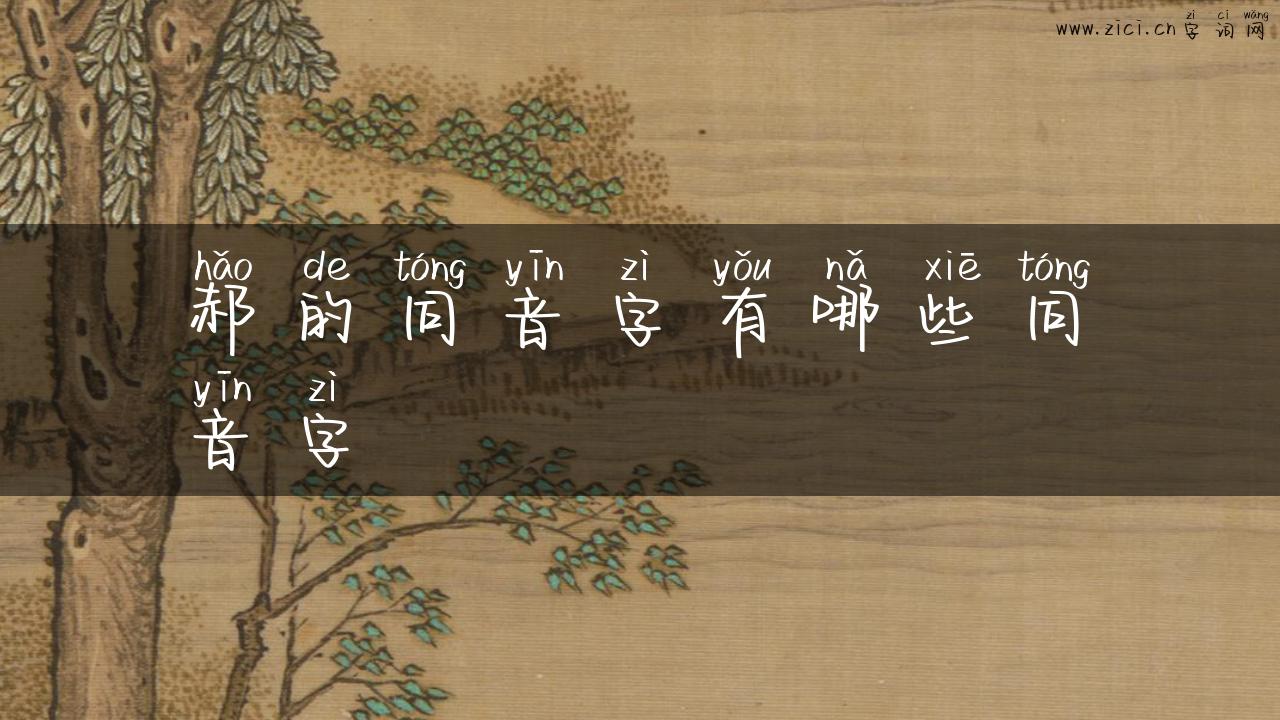 zì cí wǎng
www.zici.cn 字词网
hǎo de tóng yīn zì yǒu nǎ xiē tóng
郝的同音字有哪些同
yīn zì
音字